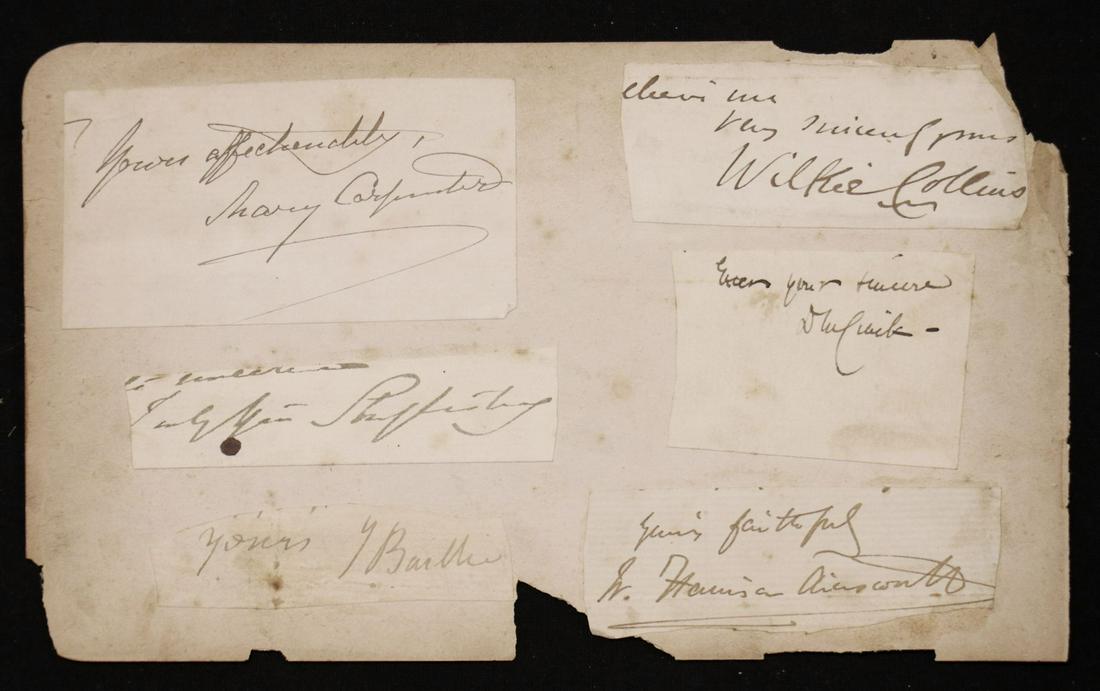 Yours affectionately,
Mary Carpenter
elieve me
very sincerely yours
Wilkie Collins
Ever yours sincere
sincere
Truly yours Shaftesbury
yours
faithfully
yours
W. Harrison Ainsworth